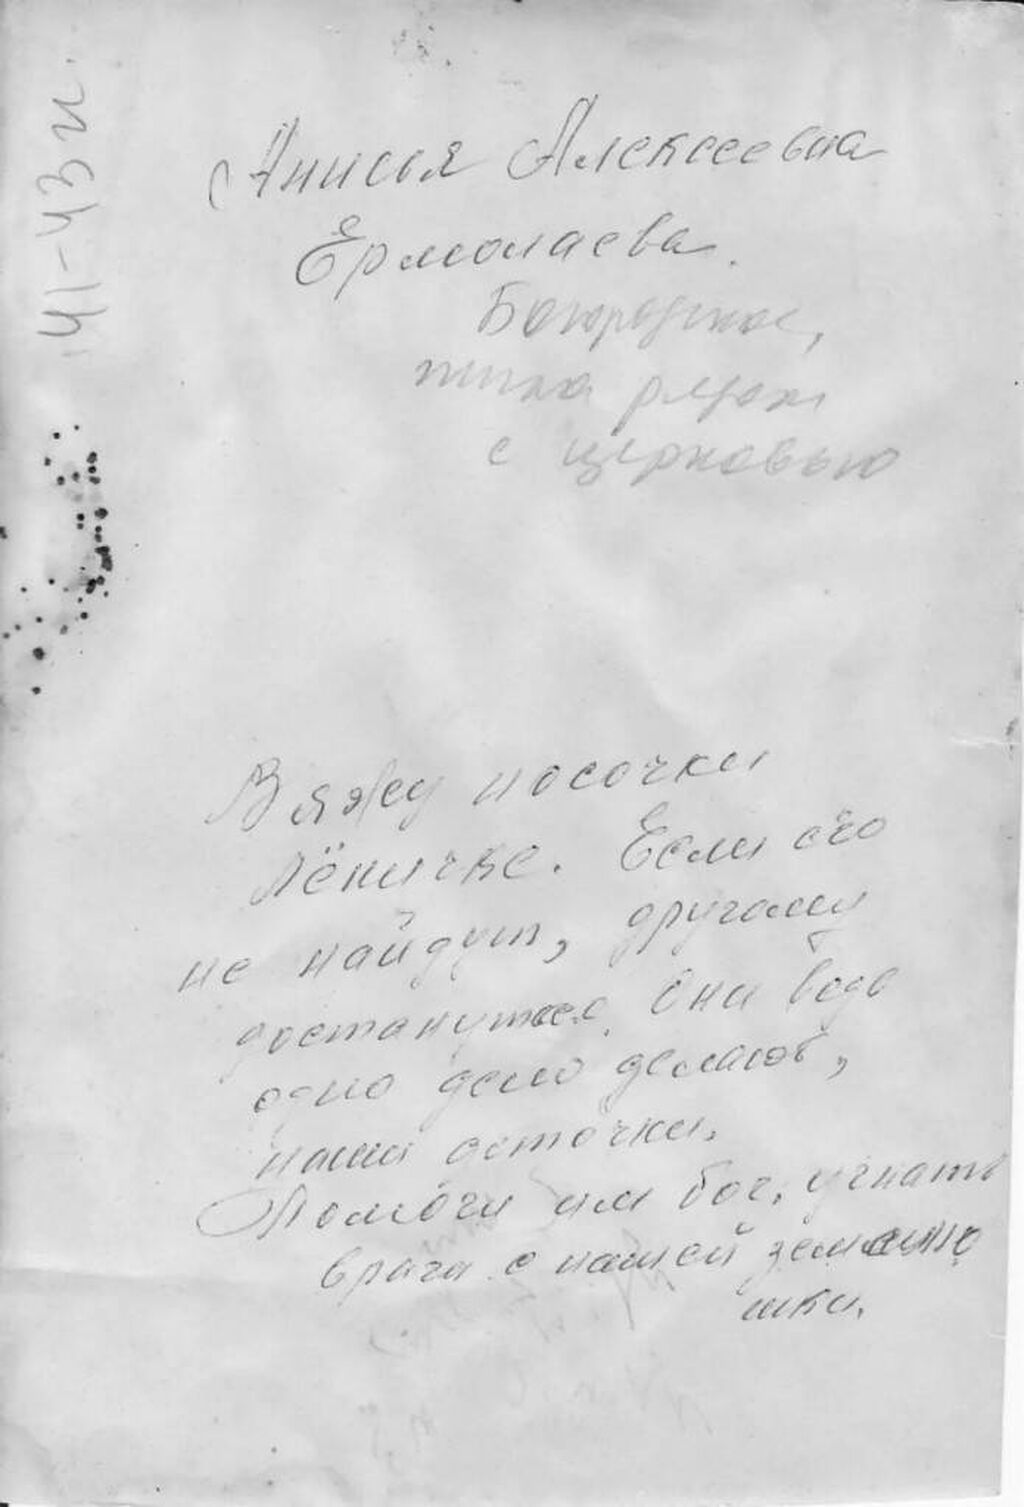 41-43 г.
Анисья Алексеевна
Ермолаева.
Богородское,
жила рядом
с церковью
Вяжу носочки
Лёничке. Если его
не найдут, другому
достануться. Они ведь
одно дело делают,
наши сыточки.
Помоги им бог, угнать
врага с нашей землюю
шки.